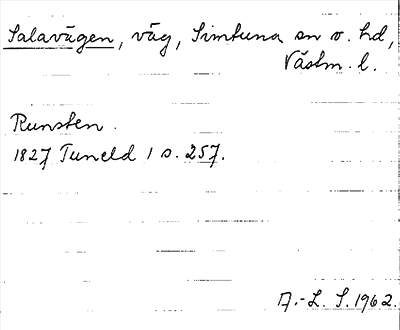 Salavägen, väg, Simtuna sn o. hd,
Västm. l.
Runsten.
1827 Tuneld 1 s. 257.
A.-L. S. 1962.